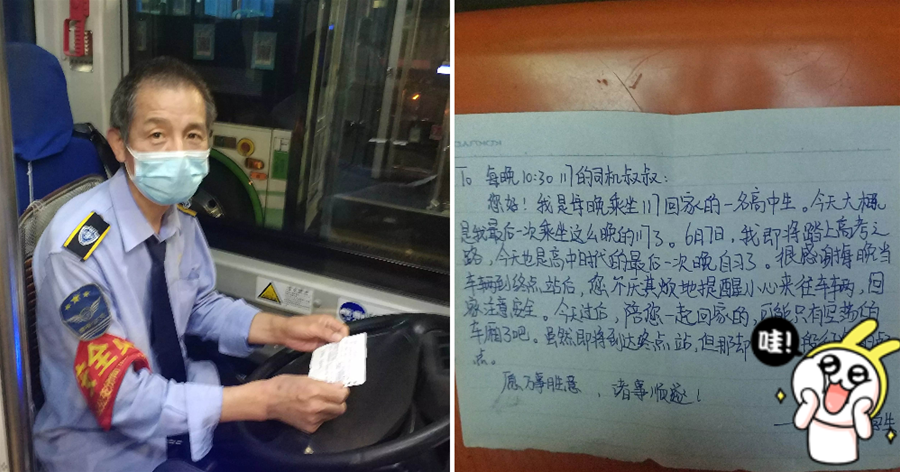 安全
To 每晚10:30 117的司机叔叔:
您好!我是每晚乘坐117回家的一名高中生。今天大概
是我最后一次乘坐这么晚的117了。6月7日,我即将踏上高考之
路,今天也是高中时代的最后一次晚自习了。很感谢每晚当
车辆到终点站后,您不厌其烦地提醒小心来往车辆,回
家注意安全。今天过后,陪您一起回家的,可能只有空荡的
车厢了吧。虽然即将到达终点站,但那却
点。
愿万事胜意,诸事顺遂!
哇!